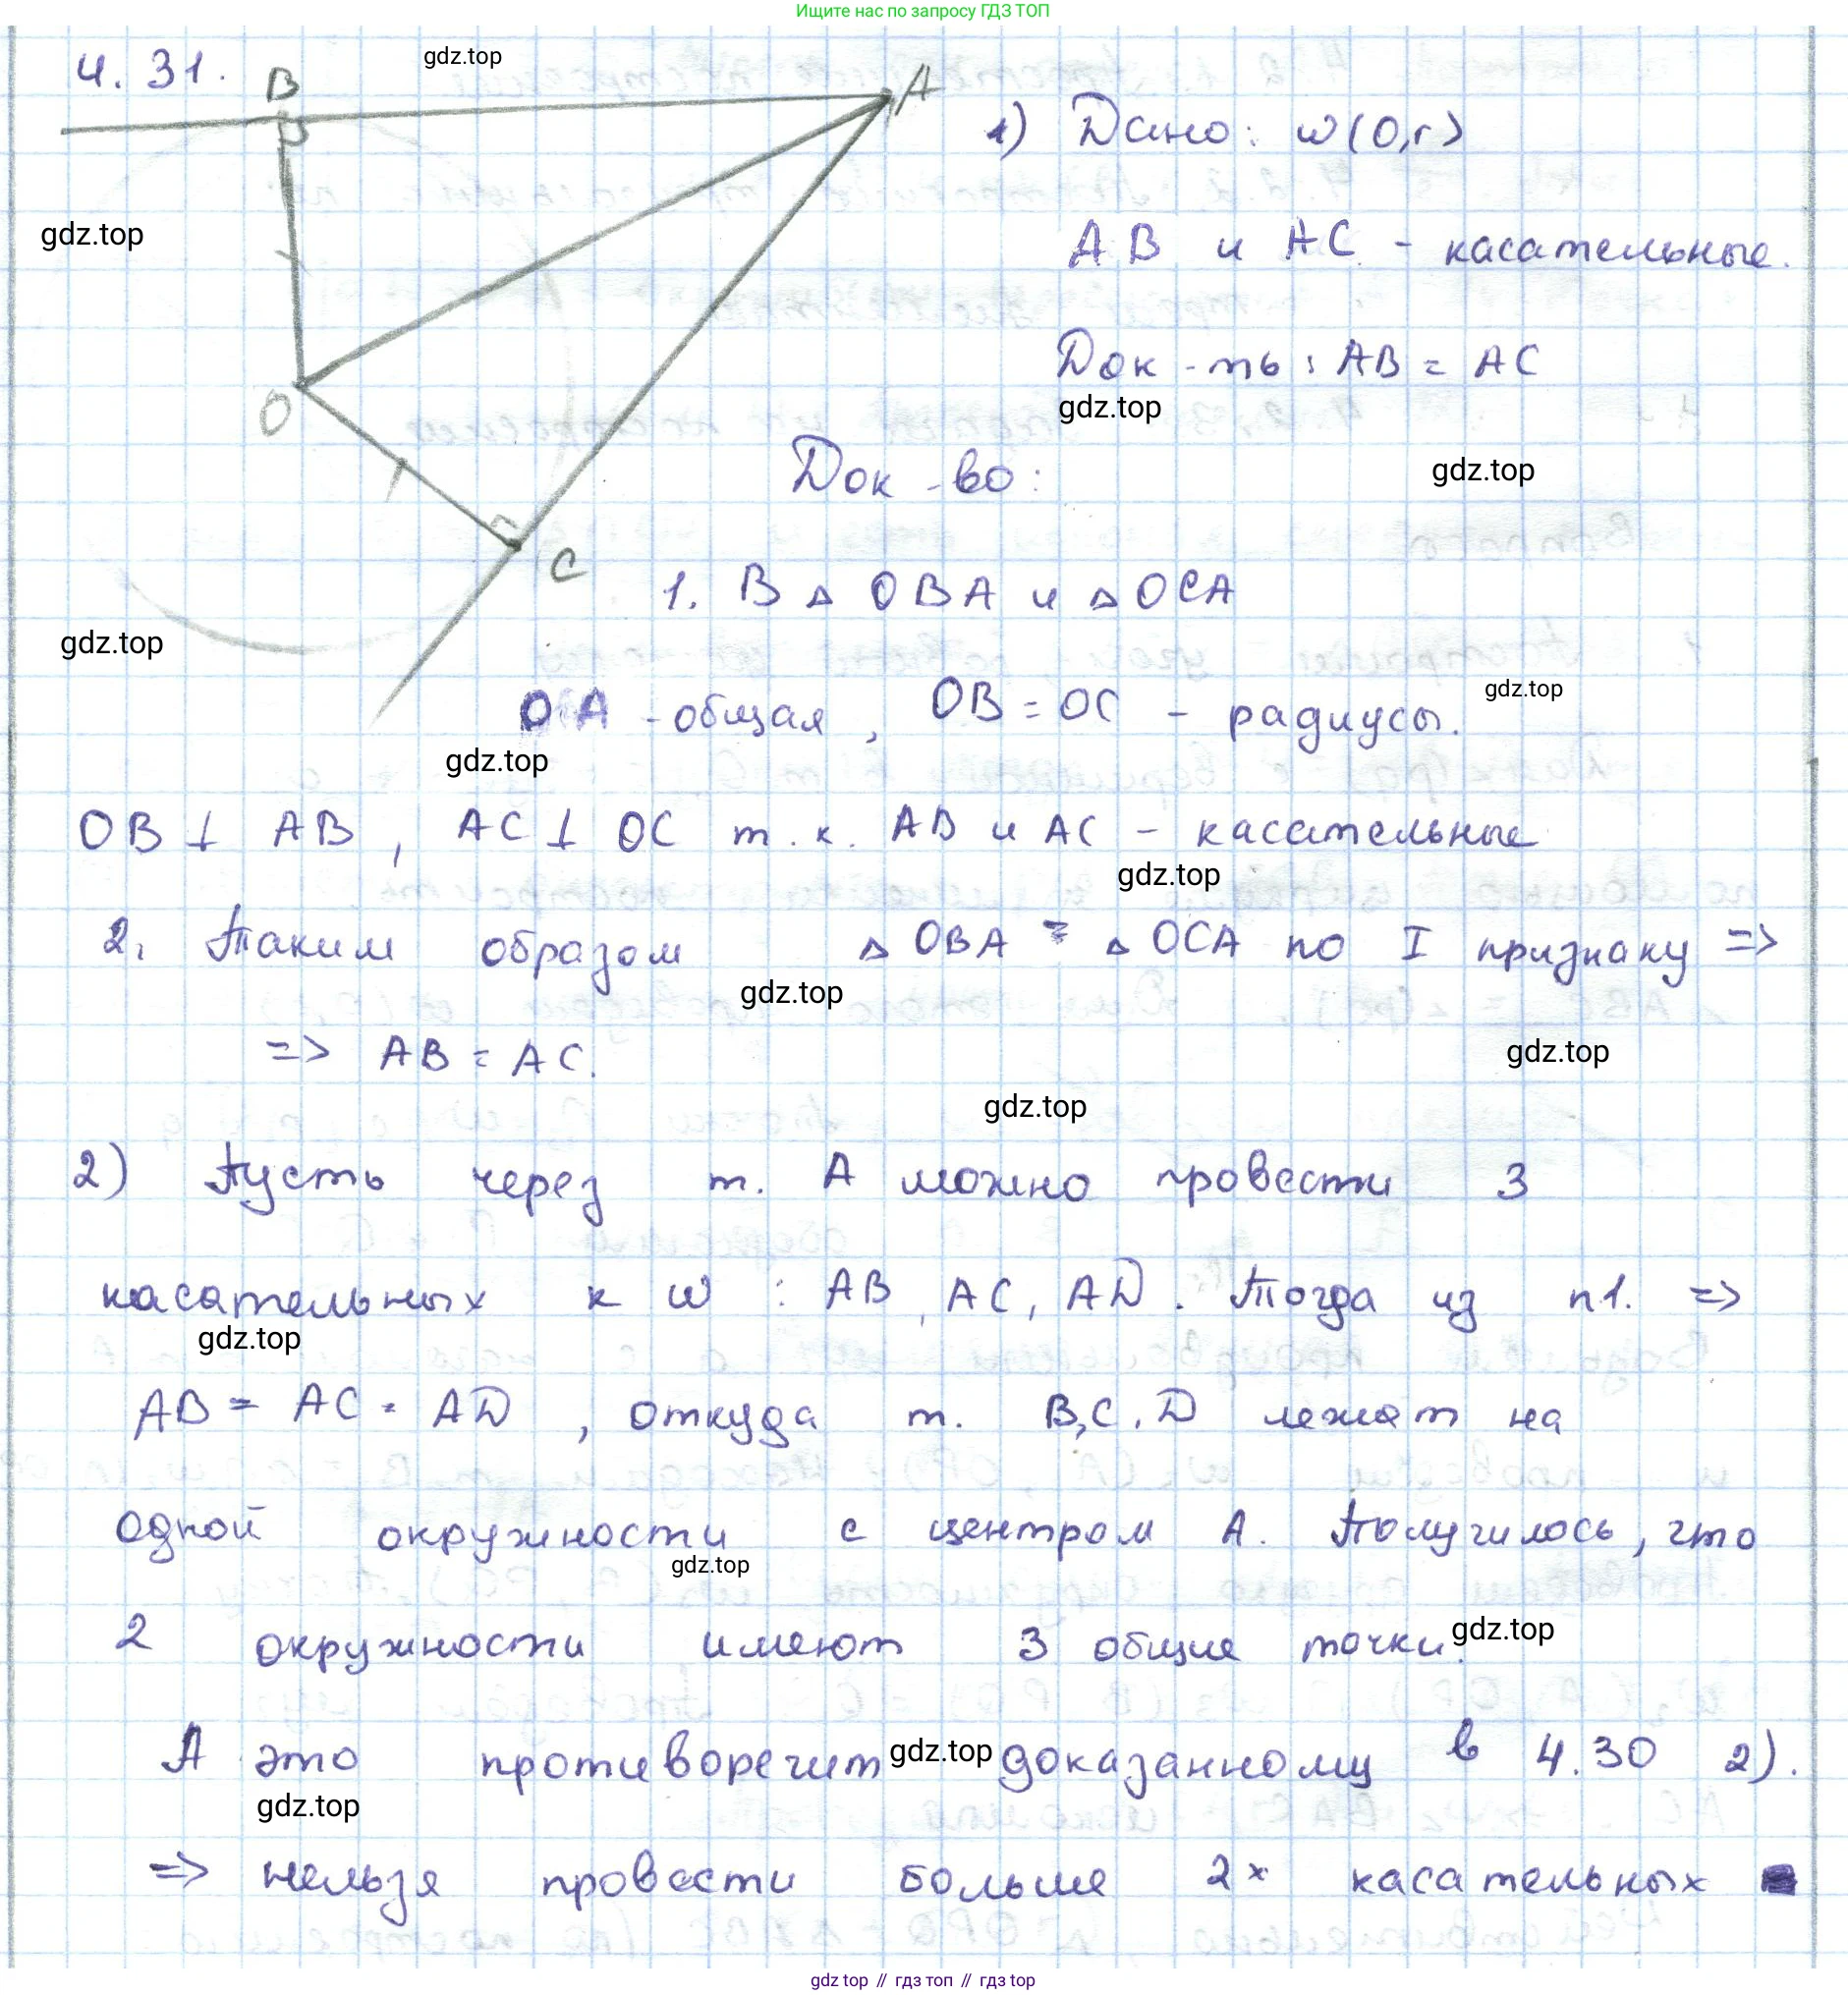 Ищите нас по запросу ГДЗ ТОП
4.31.
gdz.top
B
A
1) Дано: ω(O,r)
gdz.top
AB и AC - касательные.
Док-ть: AB = AC
O
gdz.top
Док-во:
gdz.top
C
1. В △ OBA и △ OCA
gdz.top
OA - общая, OB = OC - радиусы.
gdz.top
gdz.top
OB ⊥ AB, AC ⊥ OC т.к. AB и AC - касательные
gdz.top
2. Таким образом △ OBA = △ OCA по I признаку =>
gdz.top
=> AB = AC.
gdz.top
gdz.top
2) Пусть через т. A можно провести 3
касательных к ω: AB, AC, AD. Тогда из п1. =>
gdz.top
AB = AC = AD, откуда т. B,C,D лежат на
одной окружности с центром A. Получилось, что
gdz.top
2 окружности имеют 3 общие точки.
gdz.top
А это противоречит доказанному в 4.30 2).
gdz.top
gdz.top
=> нельзя провести больше 2х касательных
gdz top // гдз топ // гдз top